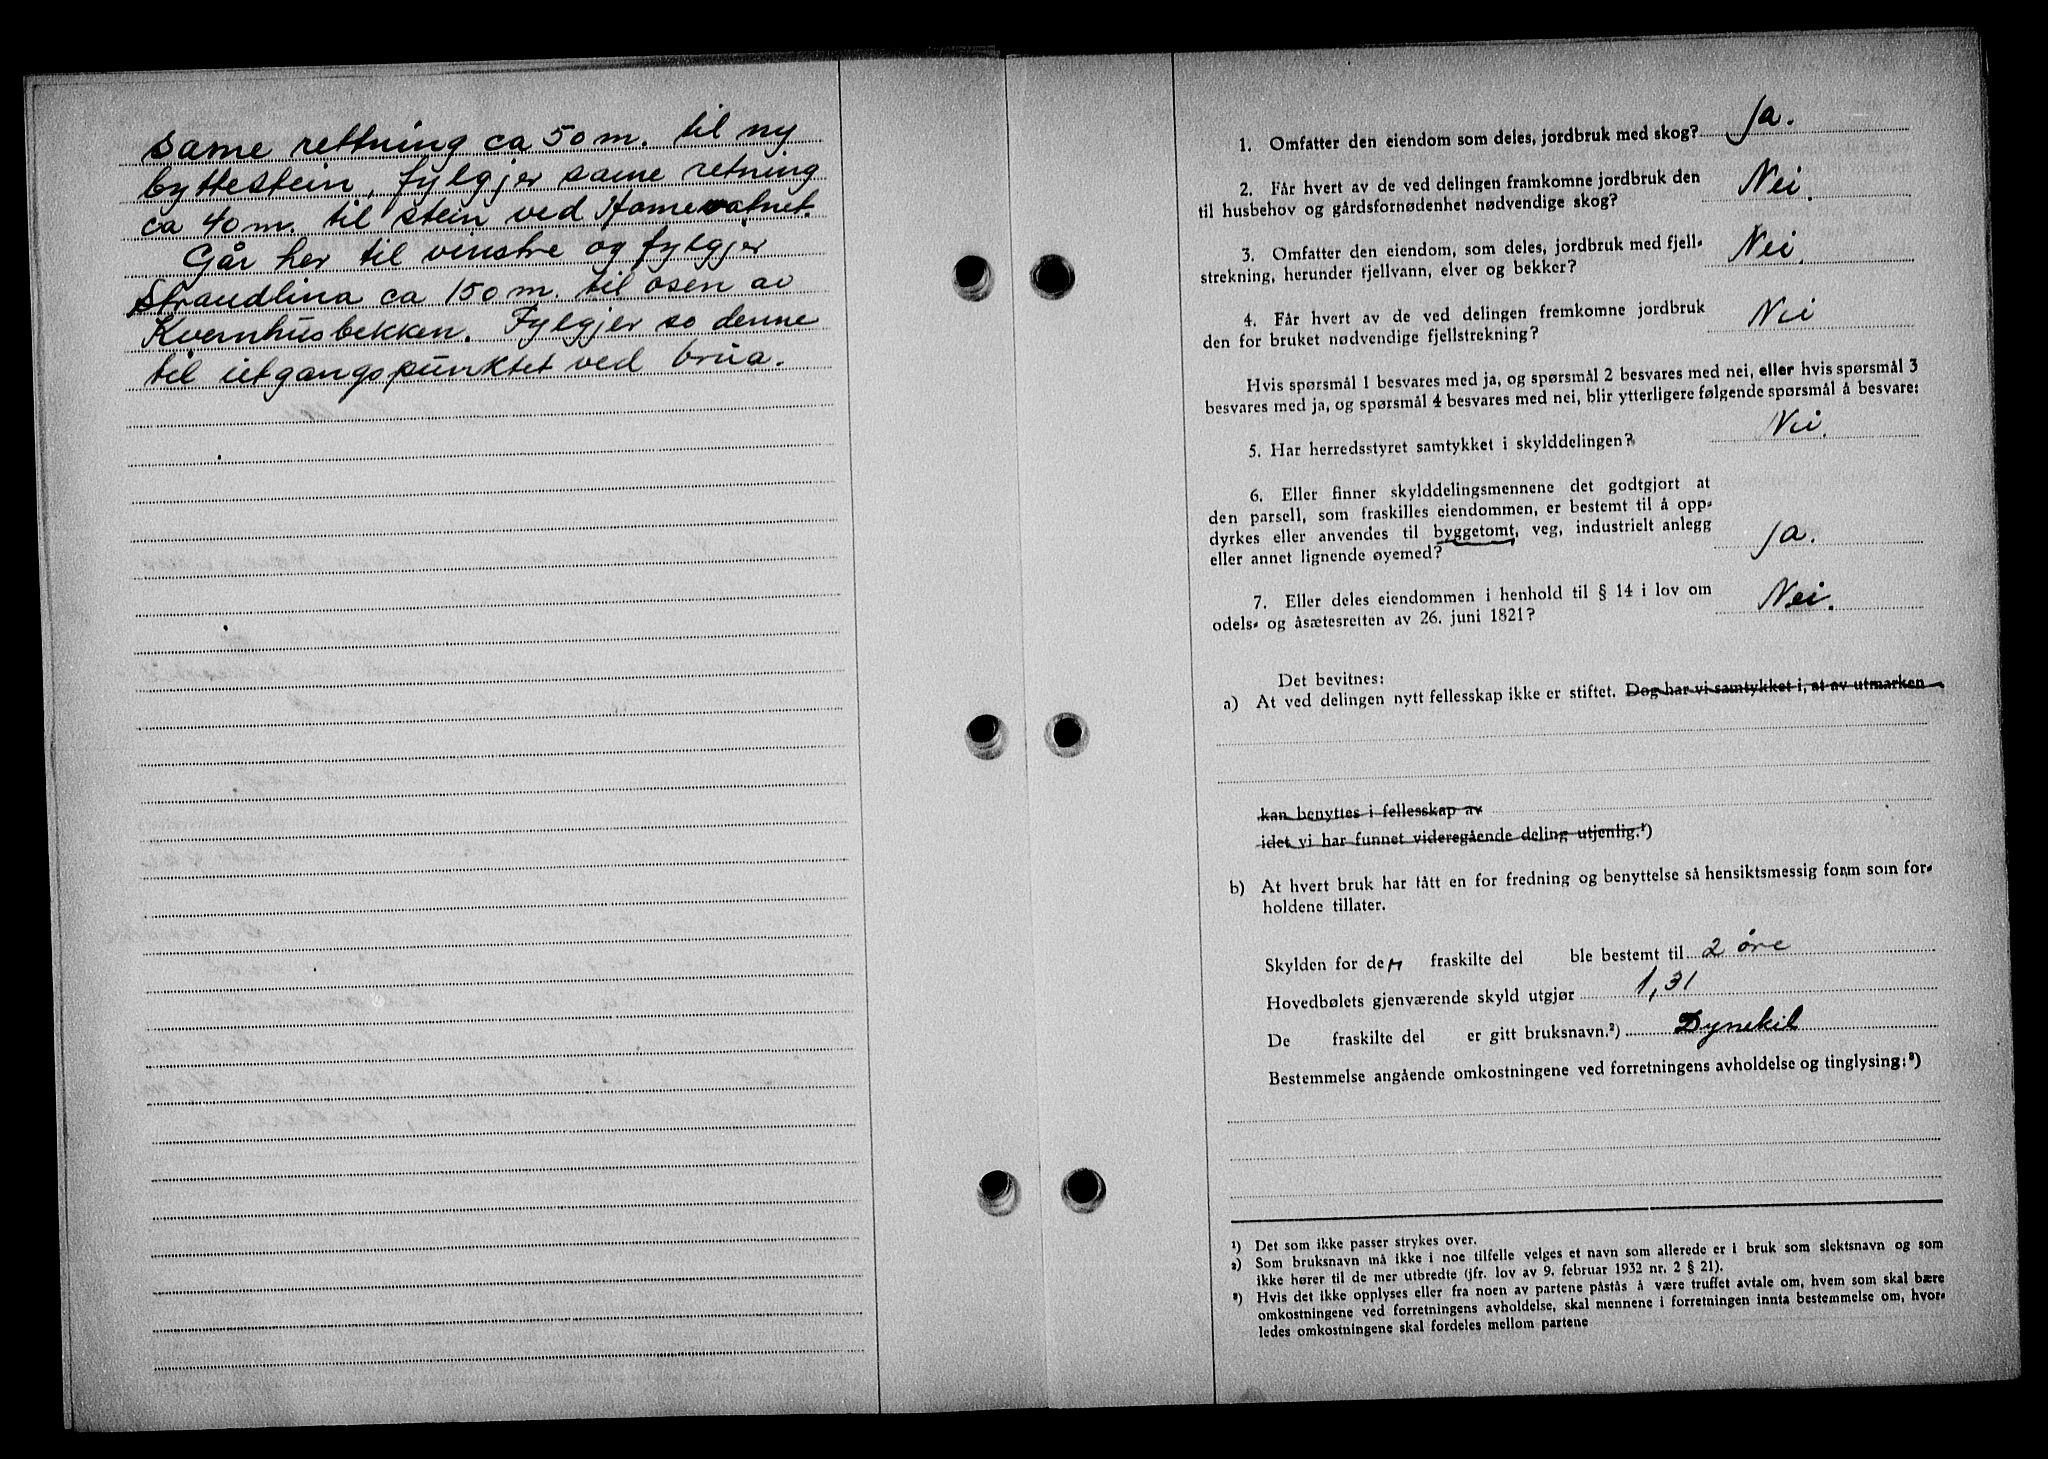 same rettning ca 50 m. til ny
byttestein, fylgjer same retning
ca 40 m. til stein ved Homevatnet.
Går her til vinstre og fylgjer
Strandlina ca 150 m. til osen av
Kvernhusbekken. Fylgjer so denne
til utgangspunktet ved brua.
1. Omfatter den eiendom som deles, jordbruk med skog? Ja.
2. Får hvert av de ved delingen framkomne jordbruk den
til husbehov og gårdsfornødenhet nødvendige skog? Nei.
3. Omfatter den eiendom, som deles, jordbruk med fjell-
strekning, herunder fjellvann, elver og bekker? Nei.
4. Får hvert av de ved delingen fremkomne jordbruk
den for bruket nødvendige fjellstrekning? Nei
Hvis spørsmål 1 besvares med ja, og spørsmål 2 besvares med nei, eller hvis spørsmål 3
besvares med ja, og spørsmål 4 besvares med nei, blir ytterligere følgende spørsmål å besvare:
5. Har herredsstyret samtykket i skylddelingen? Nei.
6. Eller finner skylddelingsmennene det godtgjort at
den parsell, som fraskilles eiendommen, er bestemt til å opp-
dyrkes eller anvendes til byggetomt, veg, industrielt anlegg
eller annet lignende øyemed? Ja.
7. Eller deles eiendommen i henhold til § 14 i lov om
odels- og åsætesretten av 26. juni 1821? Nei.
Det bevitnes:
a) At ved delingen nytt fellesskap ikke er stiftet. Dog har vi samtykket i, at av utmarken
kan benyttes i fellesskap av
idet vi har funnet videregående deling utjenlig.¹)
b) At hvert bruk har fått en for fredning og benyttelse så hensiktsmessig form som for-
holdene tillater.
Skylden for den fraskilte del ble bestemt til 2 øre
Hovedbølets gjenværende skyld utgjør 1,31
De fraskilte del er gitt bruksnavn.²) Dynekil
Bestemmelse angående omkostningene ved forretningens avholdelse og tinglysing:³)
¹) Det som ikke passer strykes over.
²) Som bruksnavn må ikke i noe tilfelle velges et navn som allerede er i bruk som slektsnavn og som
ikke hører til de mer utbredte (jfr. lov av 9. februar 1932 nr. 2 § 21).
³) Hvis det ikke opplyses eller fra noen av partene påstås å være truffet avtale om, hvem som skal bære
omkostningene ved forretningens avholdelse, skal mennene i forretningen innta bestemmelse om, hvor-
ledes omkostningene skal fordeles mellom partene